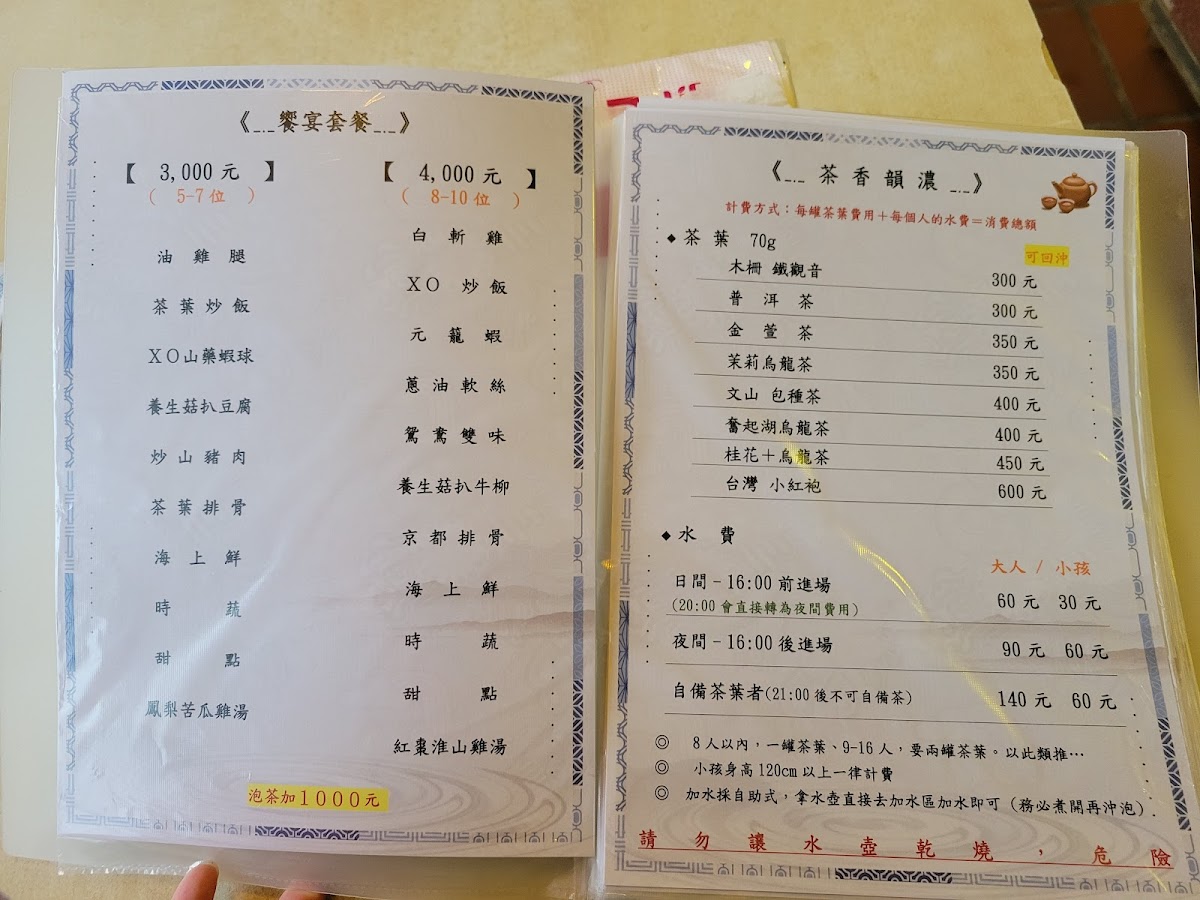 《_._饗宴套餐_._》
【 3,000 元 】
( 5-7 位 )
油雞腿
茶葉炒飯
XO山藥蝦球
養生菇扒豆腐
炒山豬肉
茶葉排骨
海上鮮
時蔬
甜點
鳳梨苦瓜雞湯
【 4,000 元 】
( 8-10 位 )
白斬雞
XO 炒飯
元籠蝦
蔥油軟絲
鴛鴦雙味
養生菇扒牛柳
京都排骨
海上鮮
時蔬
甜點
紅棗淮山雞湯
泡茶加1000元
《_._ 茶香韻濃 _._》
計費方式:每罐茶葉費用+每個人的水費=消費總額
◆茶葉 70g
可回沖
木柵 鐵觀音 300 元
普洱茶 300 元
金萱茶 350 元
茉莉烏龍茶 350 元
文山 包種茶 400 元
奮起湖烏龍茶 400 元
桂花+烏龍茶 450 元
台灣 小紅袍 600 元
◆水費
大人 / 小孩
日間-16:00 前進場
(20:00 會直接轉為夜間費用) 60 元 30 元
夜間-16:00 後進場 90 元 60 元
自備茶葉者(21:00 後不可自備茶) 140 元 60 元
◎ 8 人以內,一罐茶葉、9-16 人,要兩罐茶葉。以此類推…
◎ 小孩身高 120cm 以上一律計費
◎ 加水採自助式,拿水壺直接去加水區加水即可(務必煮開再沖泡).
請勿讓水壺乾燒,危險